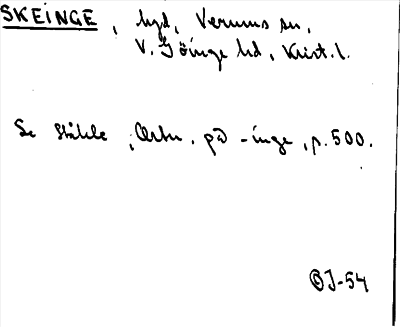 SKEINGE, bygd, Verums sn,
V. Göinge hd, Krist. l.
Se Ståhle, Ortn. på -inge, p. 500.
J-54